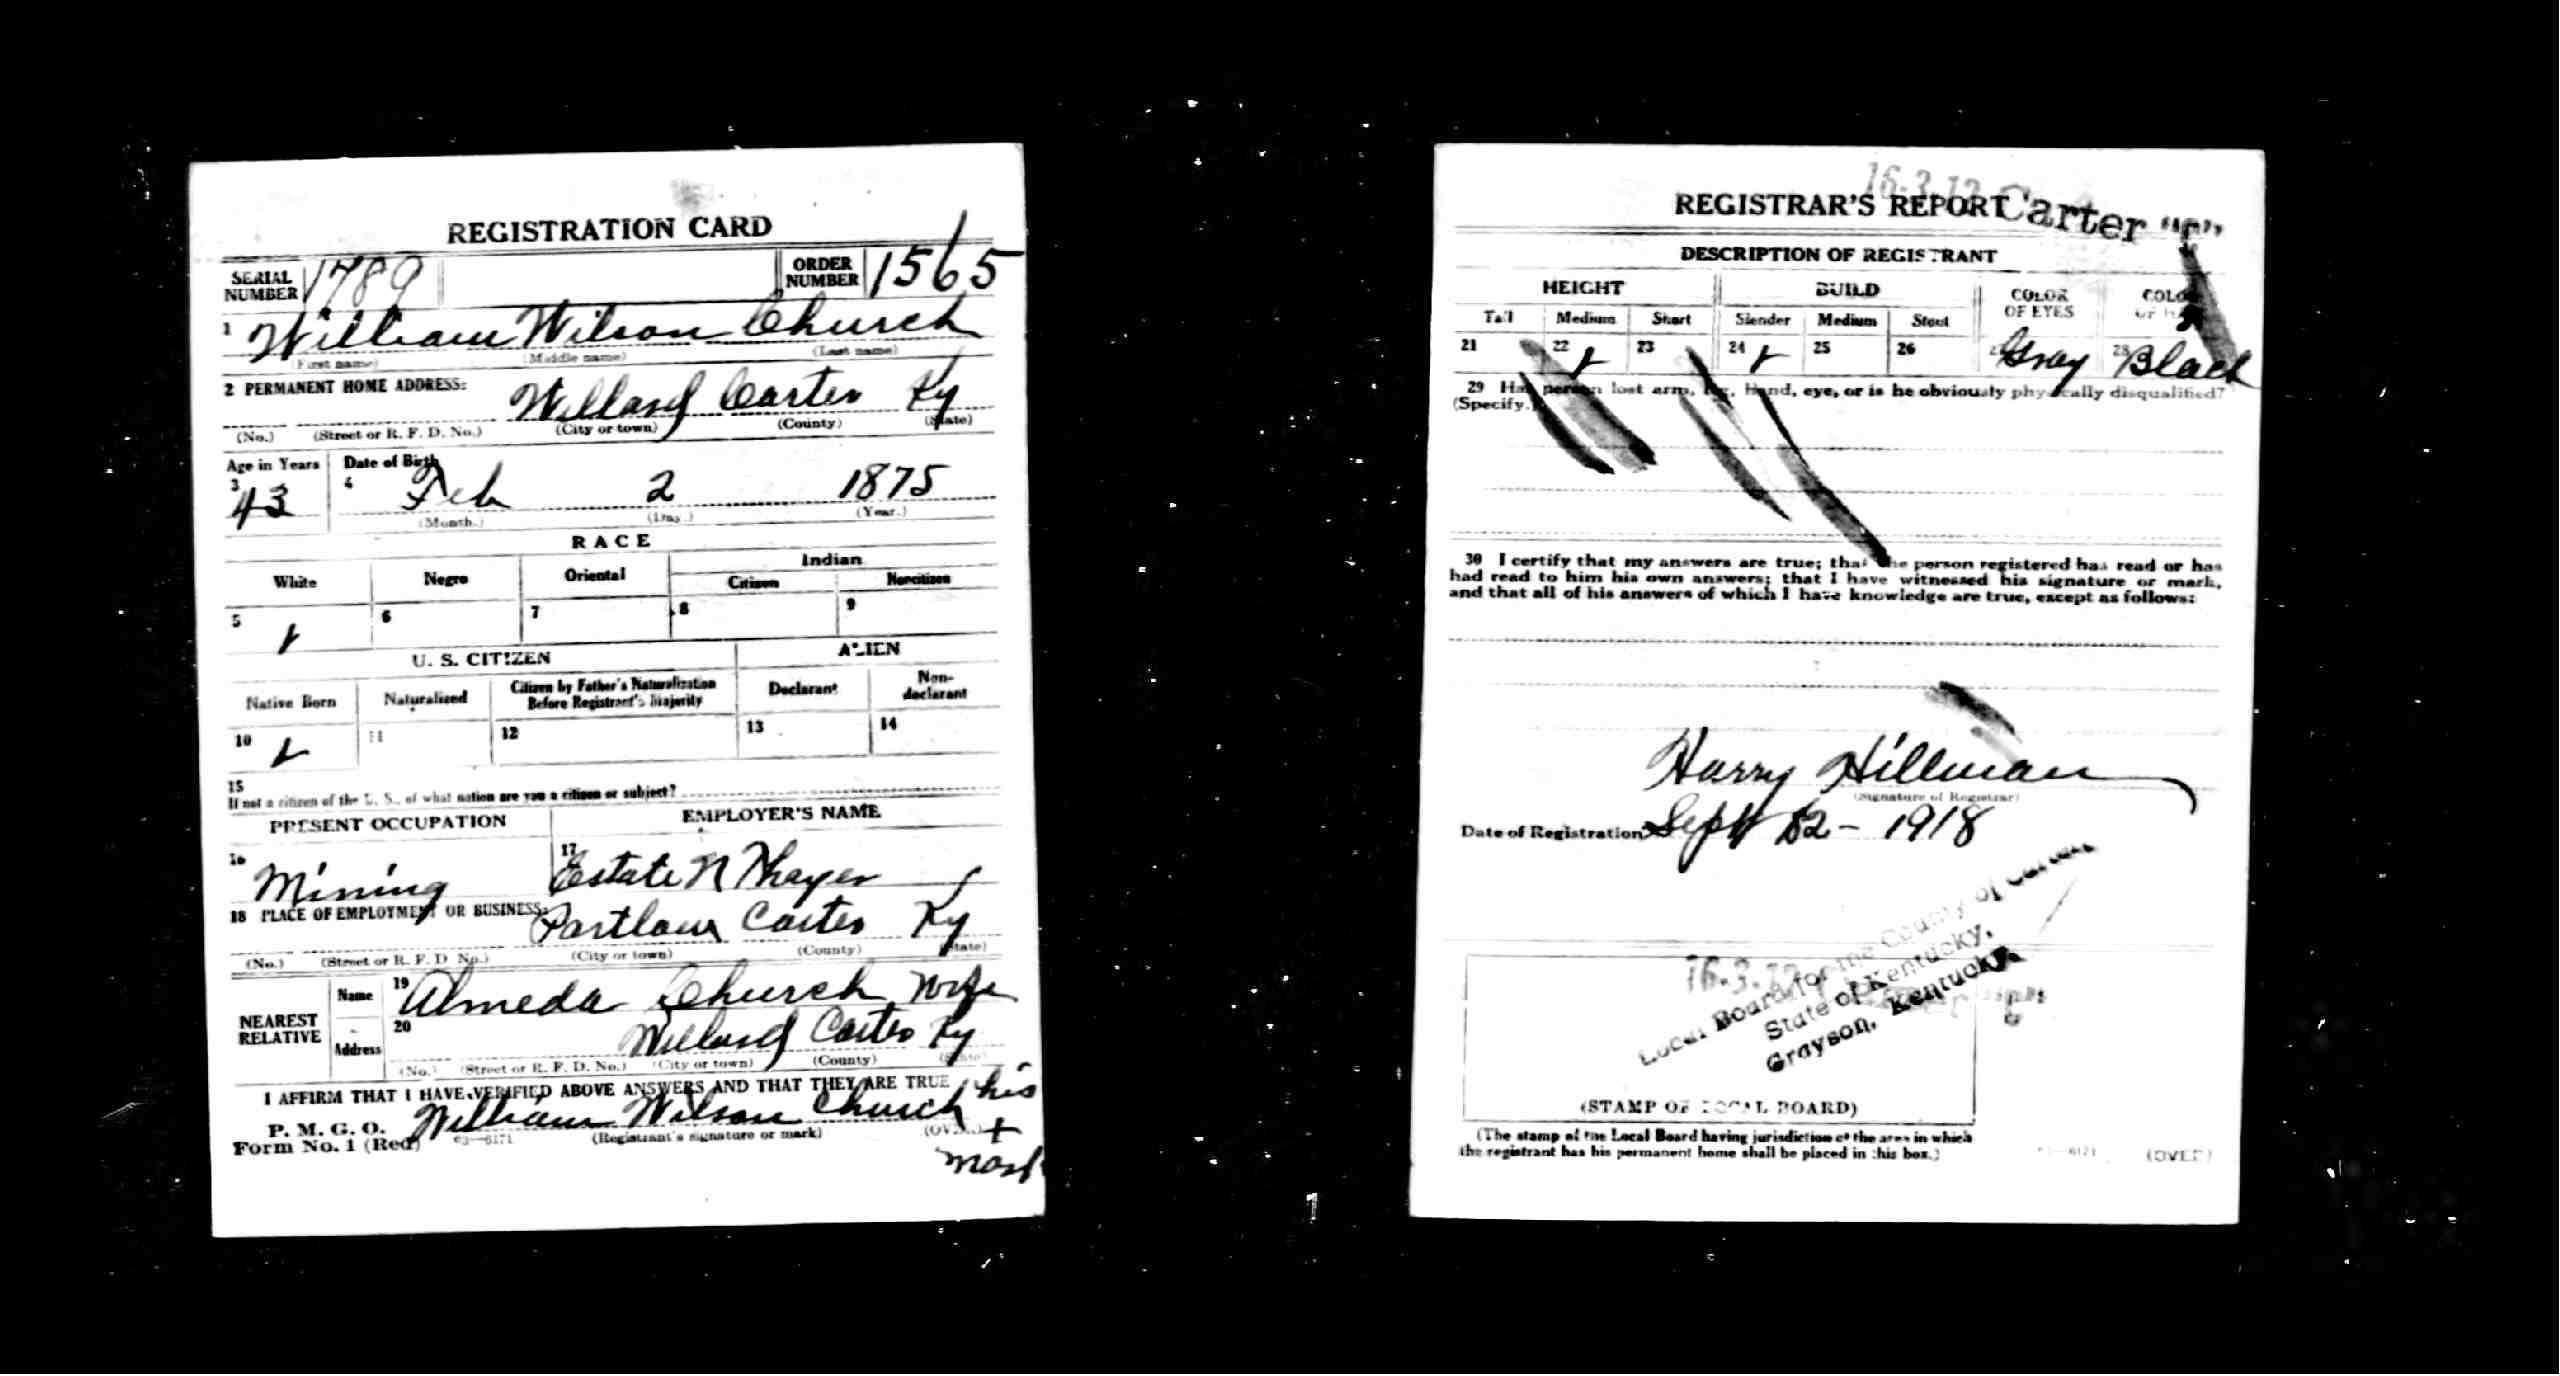 REGISTRATION CARD
SERIAL NUMBER 1789 ORDER NUMBER 1565
1 William Wilson Church
(First name) (Middle name) (Last name)
2 PERMANENT HOME ADDRESS:
Willard Carter Ky
(No.) (Street or R. F. D. No.) (City or town) (County) (State)
Age in Years Date of Birth
3 43 4 Feb 2 1875
(Month.) (Day.) (Year.)
RACE
White Negro Oriental Indian
Citizen Noncitizen
5 6 7 8 9
U. S. CITIZEN ALIEN
Native Born Naturalized Citizen by Father's Naturalization Before Registrant's Majority Declarant Non-declarant
10 11 12 13 14
15
If not a citizen of the U. S., of what nation are you a citizen or subject?
PRESENT OCCUPATION EMPLOYER'S NAME
16 Mining 17 Estate N Thayer
18 PLACE OF EMPLOYMENT OR BUSINESS:
Carter Ky
(No.) (Street or R. F. D. No.) (City or town) (County) (State)
NEAREST RELATIVE
Name 19 Almeda Church Wife
Address 20 Willard Carter Ky
(No.) (Street or R. F. D. No.) (City or town) (County) (State)
I AFFIRM THAT I HAVE VERIFIED ABOVE ANSWERS AND THAT THEY ARE TRUE
P. M. G. O.
Form No. 1 (Red) 03—6171 William Wilson Church his + mark
(Registrant's signature or mark) (OVER)
16-3-12
REGISTRAR'S REPORT Carter
DESCRIPTION OF REGISTRANT
HEIGHT BUILD COLOR OF EYES COLOR OF HAIR
Tall Medium Short Slender Medium Stout
21 22 23 24 25 26 27 Gray 28 Black
29 Has person lost arm, leg, hand, eye, or is he obviously physically disqualified?
(Specify.)
30 I certify that my answers are true; that the person registered has read or has
had read to him his own answers; that I have witnessed his signature or mark,
and that all of his answers of which I have knowledge are true, except as follows:
Harry Hillman
(Signature of Registrar)
Date of Registration Sept 12 - 1918
16-3-12
Local Board for the County of Carter,
State of Kentucky,
Grayson, Kentucky.
(STAMP OF LOCAL BOARD)
(The stamp of the Local Board having jurisdiction of the area in which
the registrant has his permanent home shall be placed in this box.)
03—6171 (OVER)